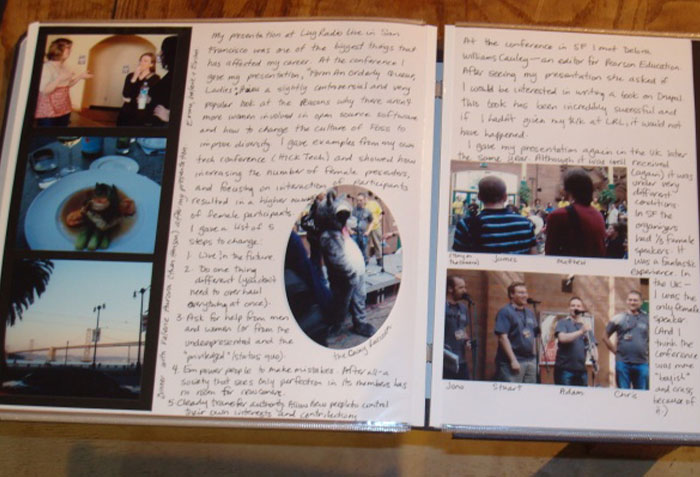 My presentation at Lug Radio Live in San
Francisco was one of the biggest things that
has affected my career. At the conference I
gave my presentation, "Form An orderly Queue,
Ladies", a slightly controversial and very
popular look at the reasons why there aren't
more women involved in open source software
and how to change the culture of FOSS to
improve diversity. I gave examples from my own
tech conference (HICK Tech) and showed how
increasing the number of female presenters,
and focusing on interaction of participants
resulted in a higher number
of female participants.
I gave a list of 5
steps to change:
1. Live in the future.
2. Do one thing
different (you don't
need to overhaul
everything at once).
3. Ask for help from men
and women (or from the
underrepresented and the
"privileged"/status quo).
4. Empower people to make mistakes. After all-a
society that uses only perfection in its members has
no room for newcomers.
5. Clearly transfer authority. Allow new people to control
their own interests and contributions.
the Gnay Raccoon
after my presentation
Dinner with
At the conference in SF I met Debra
Williams Cauley—an editor for Pearson Education.
After seeing my presentation she asked if
I would be interested in writing a book on Drupal.
This book has been incredibly successful and
if I hadn't given my talk at LRL, it would not
have happened.
I gave my presentation again in the UK later
the same year. Although it was well received
(again) it was
under very
different
conditions.
In SF the
organizers
had 1/3 female
speakers. It
was a fantastic
experience. In
the UK-
I was the
only female
speaker
(And I
think the
conference
was more
"laddish"
and crass
because of
it.)
James
Matthew
Jono
Stuart
Adam
Chris